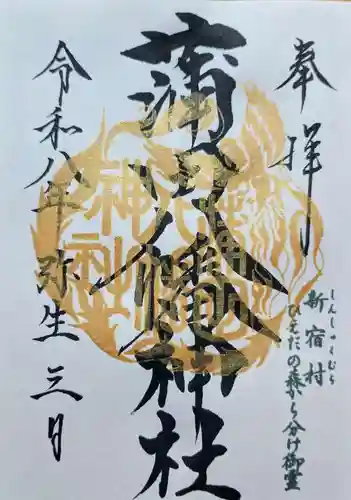 奉拝
新宿村
しんしゅくむら
ひえだの森から分け御霊
蒲田八幡神社
令和八年弥生三日